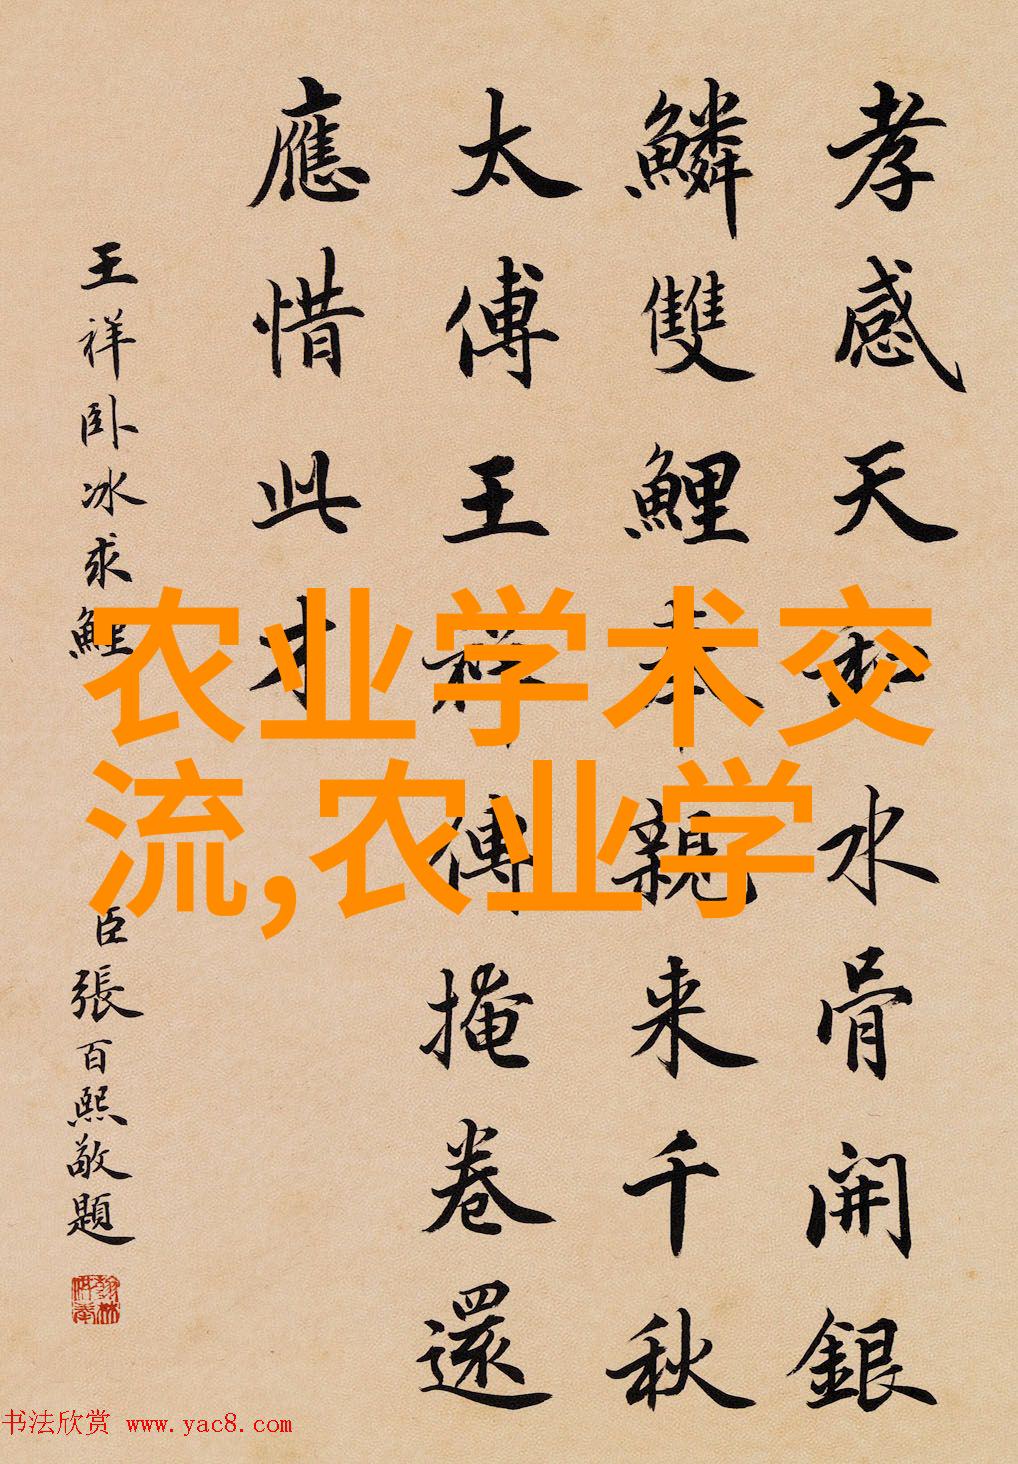 孝感天水骨開銀
鱗雙鯉奉親来千秋
太傅王祥傳掩卷還
應惜此才
王祥卧冰求鯉
臣張百熙敬題
翰林供奉
农业学术交
流,农业学
书法欣赏 www.yac8.com